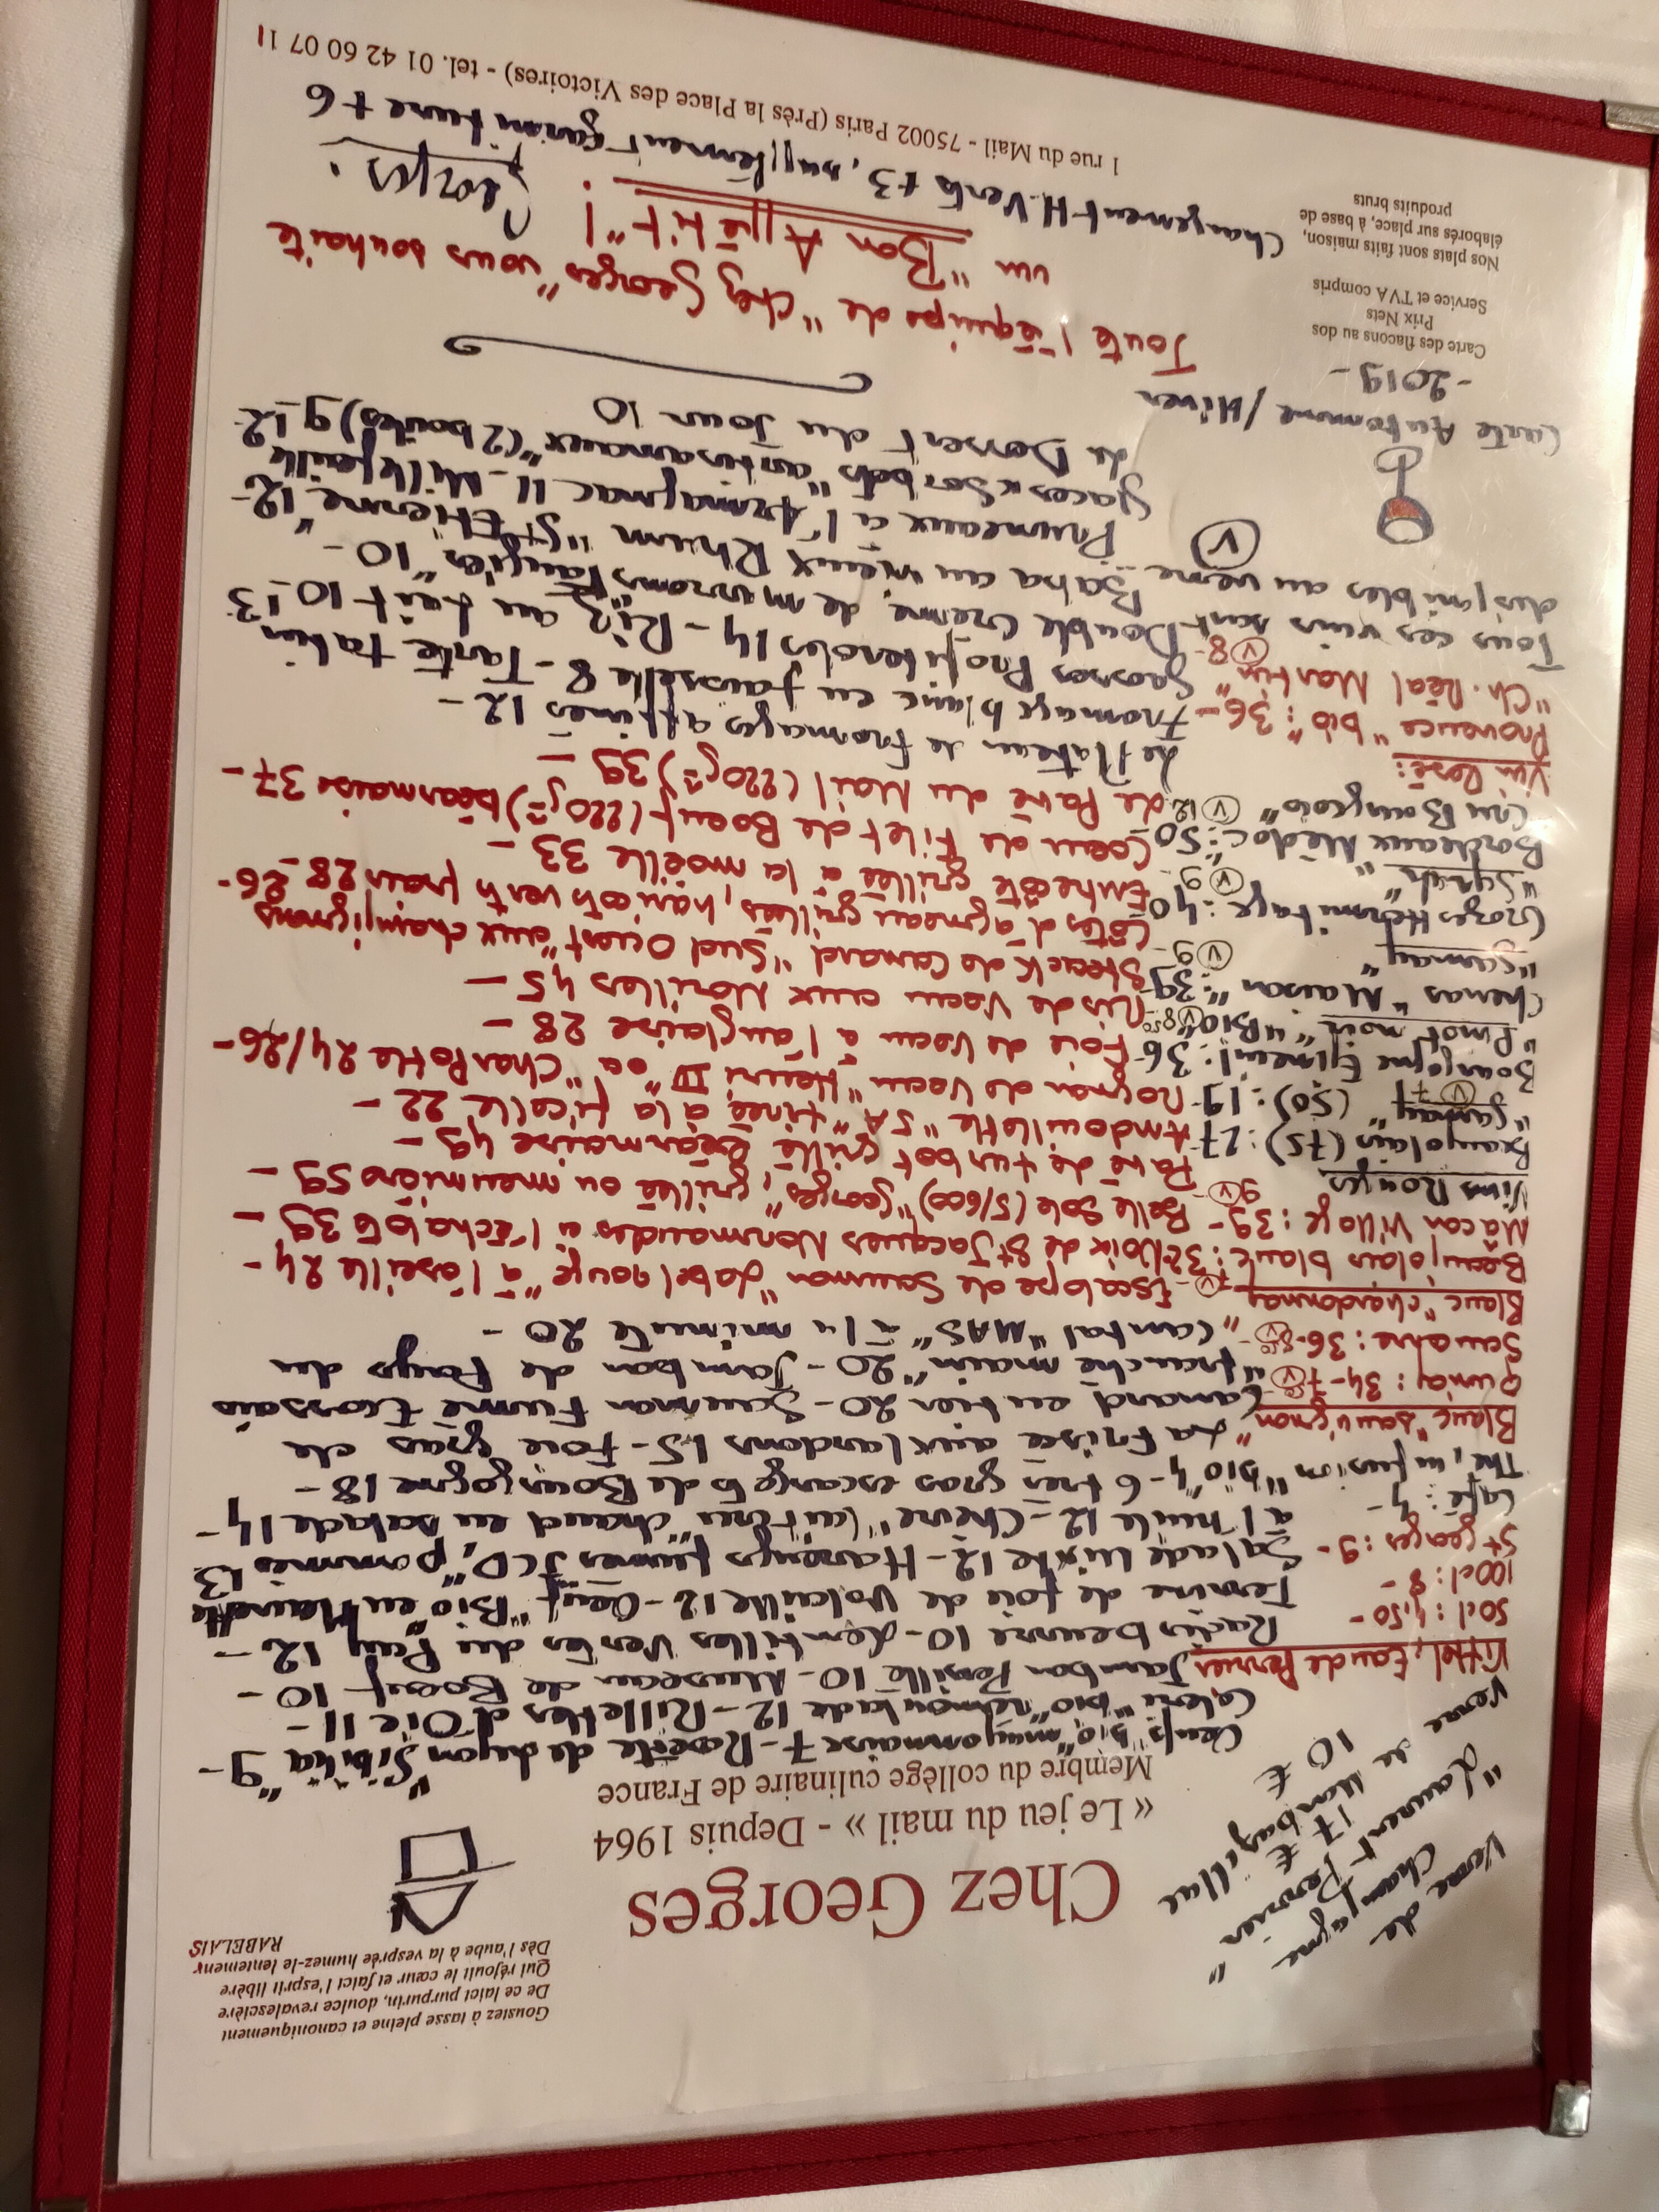 Goustez à tasse pleine et canoniquement
De ce laict purpurin, doulce revalescière
Qui réjouit le cœur et faict l'esprit libère
Dès l'aube à la vesprée humez-le lentement
RABELAIS
Chez Georges
« Le jeu du mail » - Depuis 1964
Membre du collège culinaire de France
Verre de
Champagne
"Laurent-Perrier"
17 €
Verre de Monbazillac
10 €
Vittel, Eau de Perrier
50cl : 4,50-
100cl : 8-
St Georges : 9-
Café : 4-
Thé, infusion "bio" 4-
Blanc "sauvignon"
Quincy : 34- V 7
Sancerre : 36- V 8,50
Blanc "chardonnay"
Beaujolais blanc : 32 V 7-
Mâcon Village : 39- V 9-
Vins Rouges
Beaujolais (75) : 27-
"gamay" (50) : 19- V 7
Bourgogne Epineuil : 36-
"Pinot noir" "Bio" V 8,50
Chenas "Maison" : 39-
"gamay" V 9-
Crozes Hermitage : 40-
"Syrah" V 9-
Bordeaux Médoc : 50-
Cru Bourgeois" V 12-
Vin Rosé :
Provence "bio" : 36-
"Ch. Réal Martin" V 8-
Tous ces vins sont
disponibles au verre... V
Carte Automne / Hiver
- 2019 -
Carte des flacons au dos
Prix Nets
Service et TVA compris
Nos plats sont faits maison,
élaborés sur place, à base de
produits bruts
Oeufs "bio" mayonnaise 7 - Rosette de Lyon "Sibilia" 9 -
Céleri "bio" rémoulade 12 - Rillettes d'Oie 11 -
Jambon Persillé 10 - Museau de Boeuf 10 -
Radis beurre 10 - Lentilles Vertes du Puy 12 -
Terrine de foie de Volaille 12 - Oeuf "Bio" en Meurette 13
Salade Mixte 12 - Harengs fumés JCD, pommes
à l'huile 12 - Chèvre "cuit cru" chaud en salade 14 -
6 très gros escargots de Bourgogne 18 -
La frisée aux lardons 15 - Foie gras de
Canard entier 20 - Saumon Fumé Ecossais
"tranché main" 20 - Jambon de Pays du
Cantal "MAS" à la minute 20 -
Escalope de Saumon "Label rouge" à l'oseille 24 -
Noix de St Jacques Normandes à l'échalote 39 -
Belle Sole (5/600) "Georges", grillée ou meunière 59 -
Pavé de turbot grillé béarnaise 49 -
Andouillette "5A" tirée à la ficelle 22 -
Rognon de Veau "Henri IV" ou "Charlotte" 24/26 -
Foie de Veau à l'anglaise 28 -
Ris de Veau aux Morilles 45 -
Steack de Canard "Sud Ouest" aux champignons 26 -
Côtes d'agneau grillées, haricots verts frais 28 -
Entrecôte grillée à la moëlle 33 -
Coeur de Filet de Boeuf (220grs) béarnaise 37 -
Le Pavé du Mail (220grs) 39 -
Le Plateau de Fromages affinés 12 -
Fromage blanc en faisselle 8 - Tarte tatin 13
Grosses Profiteroles 14 - Riz au Lait 10 -
Double Crème, de marrons "Faugier" 10 -
Baba au vieux Rhum "St Etienne" 12 -
Pruneaux à l'Armagnac 11 - Millefeuille 12
Glaces & Sorbets "artisanaux" (2 boules) 9 -
Le Dessert du Jour 10
Toute l'équipe de "Chez Georges" vous souhaite
un "Bon Appétit" !
Georges.
Changement H. Verts + 3, supplément garniture + 6
1 rue du Mail - 75002 Paris (Près la Place des Victoires) - tel. 01 42 60 07 11